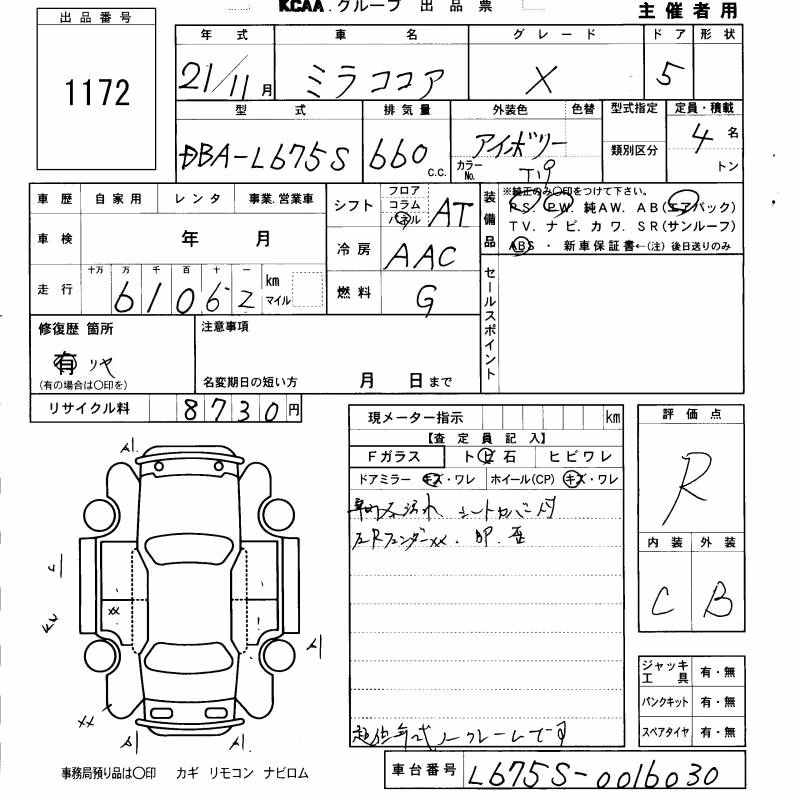 KCAA.グループ 出品票
主催者用
出品番号
1172
年式 車名 グレード ドア 形状
21/11月 ミラココア X 5
型式 排気量 外装色 色替 型式指定 定員・積載
DBA-L675S 660 C.C. アイボリー 4名
カラーNo. T19 類別区分 トン
車歴 自家用 レンタ 事業.営業車
車検 年 月
走行 十万 万 千 百 十 一
61062 km マイル
シフト フロア コラム パネル AT
冷房 AAC
燃料 G
装備品 ※純正のみ〇印をつけて下さい。
PS. PW. 純AW. AB(エアバック)
TV. ナビ. カワ. SR(サンルーフ)
ABS ・ 新車保証書←(注) 後日送りのみ
セールスポイント
修復歴 箇所
有 リヤ
(有の場合は〇印を)
注意事項
名変期日の短い方 月 日まで
リサイクル料 8730円
現メーター指示 km
【査定員記入】
Fガラス トビ石 ヒビワレ
ドアミラー キズ・ワレ ホイール(CP) キズ・ワレ
車内 汚れ シートカバー付
左Rフェンダーxx.
ノークレームです
評価点
R
内装 外装
C B
ジャッキ工具 有・無
パンクキット 有・無
スペアタイヤ 有・無
xx
xx
事務局預り品は〇印 カギ リモコン ナビロム
車台番号 L675S-0016030